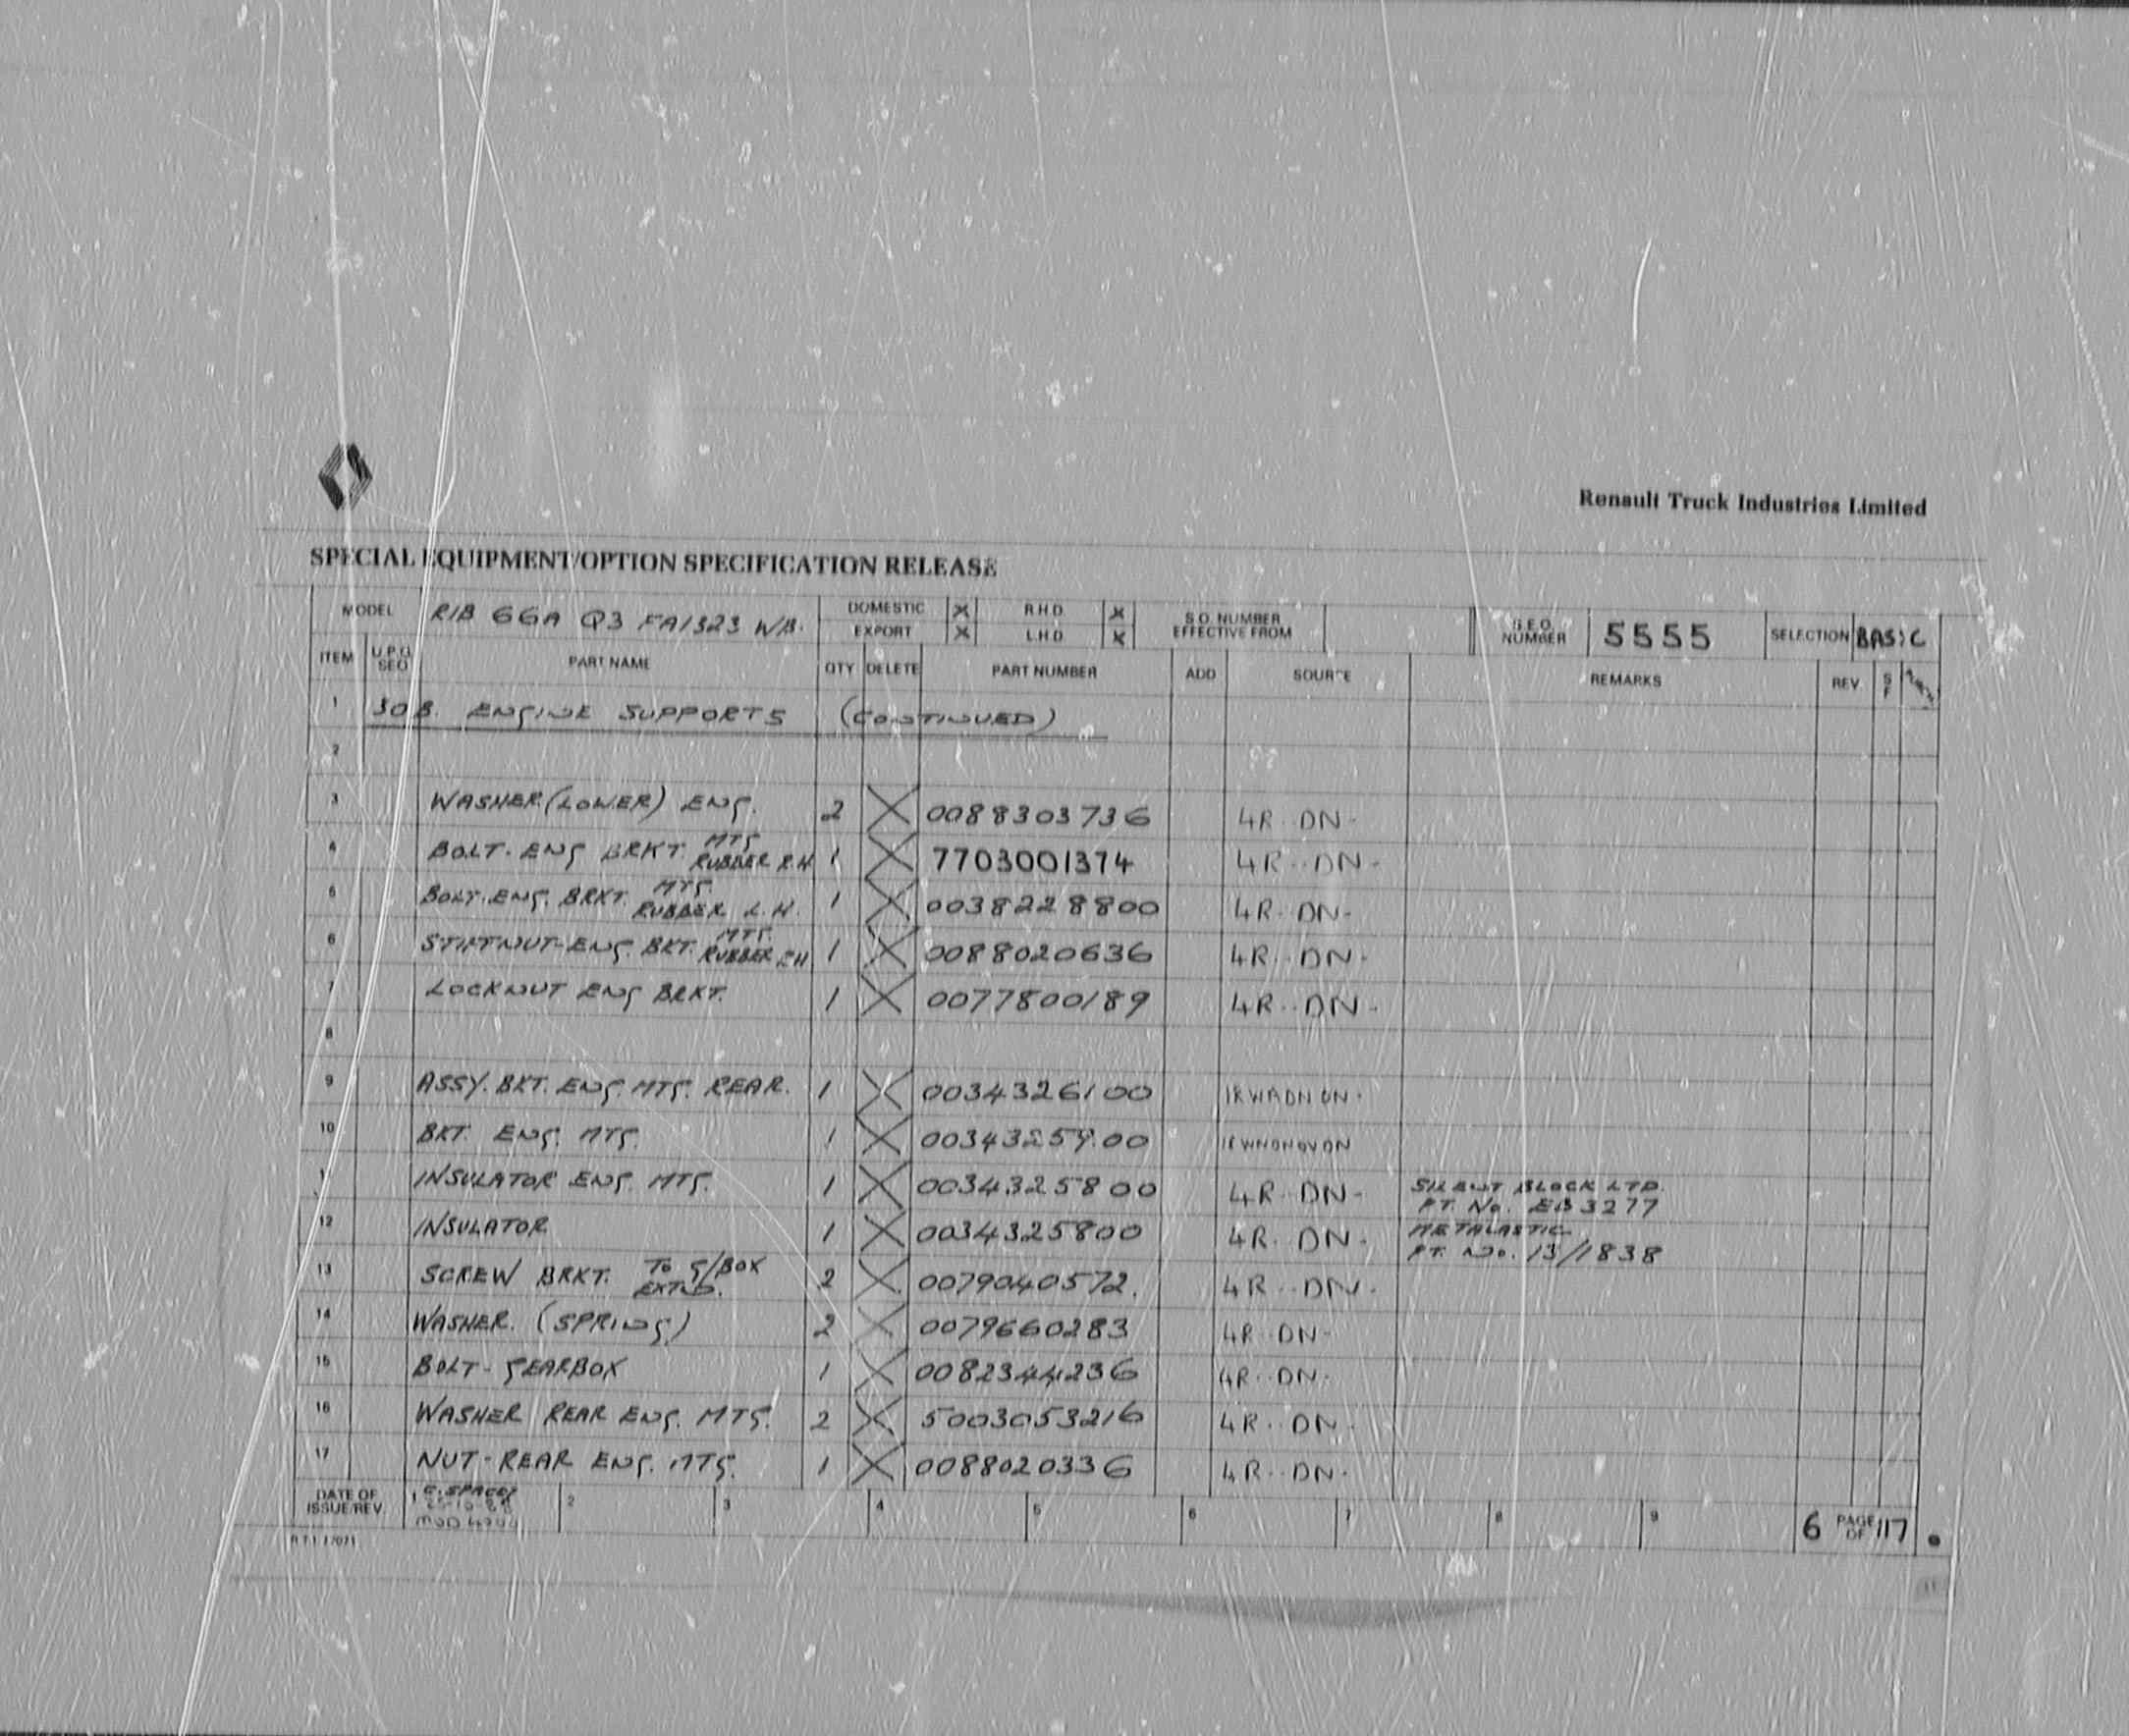 Renault Truck Industries Limited
SPECIAL EQUIPMENT/OPTION SPECIFICATION RELEASE
MODEL R1B 66A Q3 FA1323 W/B. DOMESTIC X R.H.D. X S.O. NUMBER EFFECTIVE FROM S.E.O. NUMBER 5555 SELECTION BASIC
EXPORT X L.H.D. X
ITEM U.P.G. SEQ PART NAME QTY DELETE PART NUMBER ADD SOURCE REMARKS REV S F
1 30B. ENGINE SUPPORTS (CONTINUED)
2
3 WASHER (LOWER) ENG. 2 X 0088303736 4R·DN·
4 BOLT-ENG BRKT. MTG RUBBER R.H 1 X 7703001374 4R··DN·
5 BOLT-ENG. BRKT. MTG. RUBBER L.H. 1 X 0038228800 4R·DN-
6 STIFFNUT-ENG. BKT. MTG. RUBBER RH 1 X 0088020636 4R··DN·
7 LOCKNUT ENG BRKT. 1 X 0077800189 4R··DN·
8
9 ASSY. BKT. ENG. MTG. REAR. 1 X 0034326100
10 BKT. ENG. MTG. 1 X 0034325900
11 INSULATOR ENG. MTG. 1 X 0034325800 4R·DN- SILENT BLOCK LTD.
PT. No. EB3277
12 INSULATOR 1 X 0034325800 4R·DN· METALASTIC
PT. No. 13/1838
13 SCREW BRKT. TO G/BOX EXTND. 2 X 0079040572. 4R··DN·
14 WASHER. (SPRING) 2 X 0079660283 4R··DN·
15 BOLT-GEARBOX 1 X 0082344236 4R··DN·
16 WASHER REAR ENG. MTG. 2 X 5003053216 4R··DN·
17 NUT-REAR ENG. MTG. 1 X 0088020336 4R··DN·
DATE OF ISSUE/REV. 1 2 3 4 5 6 7 8 9 6 PAGE OF 117
R.T.I. 17071